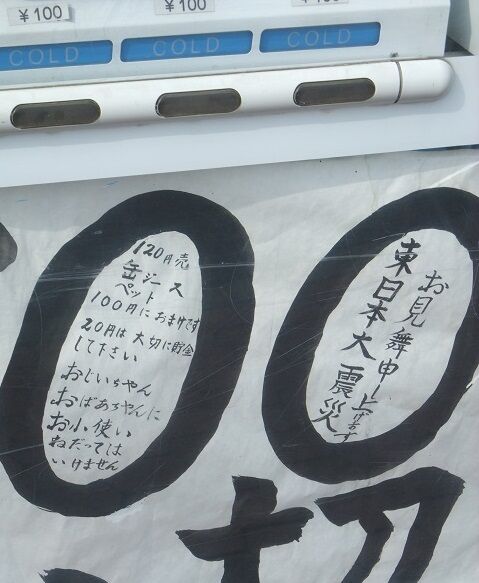 ¥100
¥100
¥100
COLD
COLD
COLD
00
120円売
缶ジース
ペット
100円におまけです
20円は大切に貯金
して下さい
おじいちゃん
おばあちゃんに
お小使い
ねだっては
いけません
東日本大震災
お見舞申し上げます
切